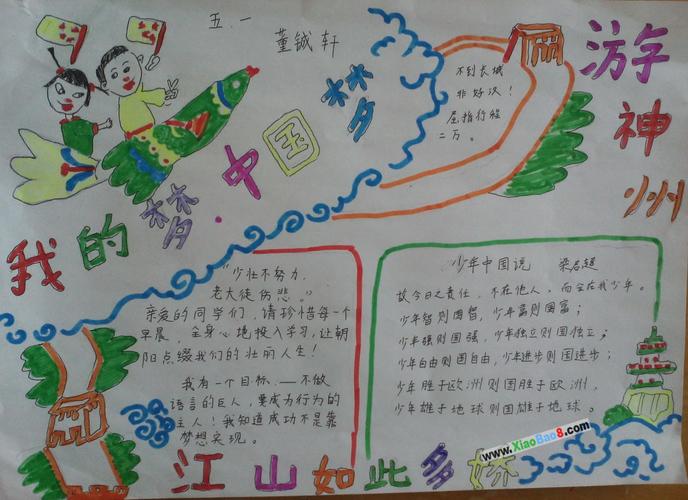 五.一
董铖轩
我的梦·中国梦
不到长城
非好汉！
屈指行程
二万。
游神州
“少壮不努力，
老大徒伤悲。”
亲爱的同学们，请珍惜每一个
早晨，全身心地投入学习，让朝
阳点缀我们的壮丽人生！
我有一个目标，——不做
语言的巨人，要成为行为的
主人！我知道成功不是靠
梦想实现。
少年中国说 梁启超
故今日之责任，不在他人，而全在我少年。
少年智则国智，少年富则国富；
少年强则国强，少年独立则国独立；
少年自由则国自由，少年进步则国进步；
少年胜于欧洲则国胜于欧洲，
少年雄于地球则国雄于地球。
江山如此多娇
www.XiaoBao8.com